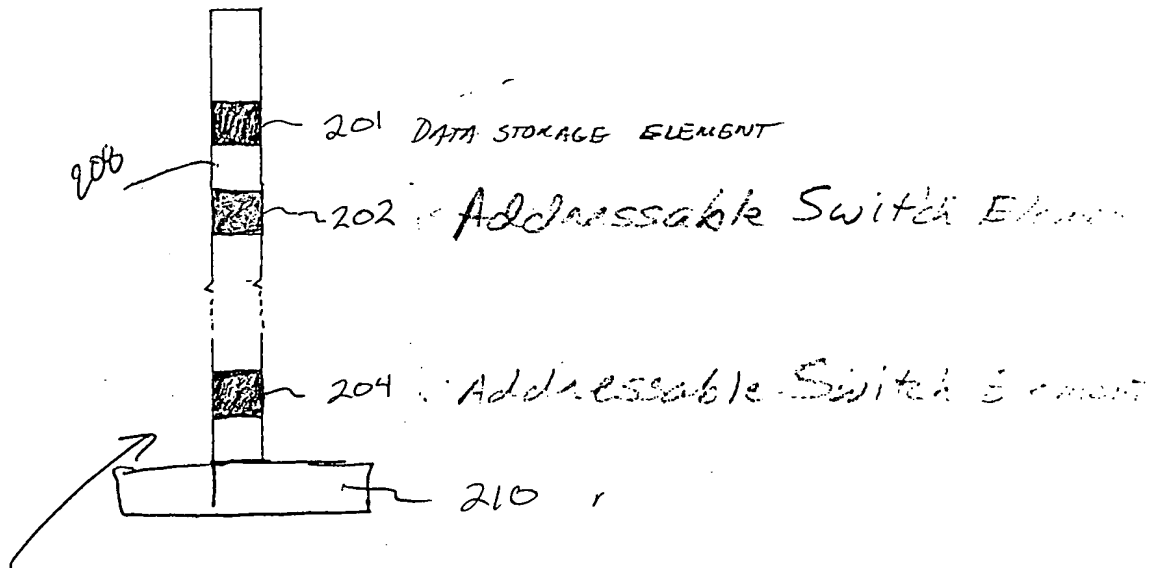 201 DATA STORAGE ELEMENT
200
202 Addressable Switch
204 Addressable Switch
210